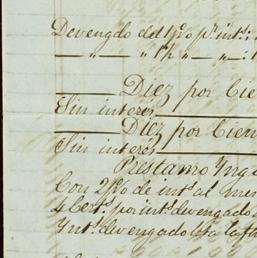 Devengdo del 1p%o pr. intt:
—„— „ 1½ „—„—:
Diez por Cie
Sin interes
Diez por Cien
Sin interes
Prestamo Ing
Con 2p%o de intt. al
4 Cert. por intt. devengado
Intt. devengado